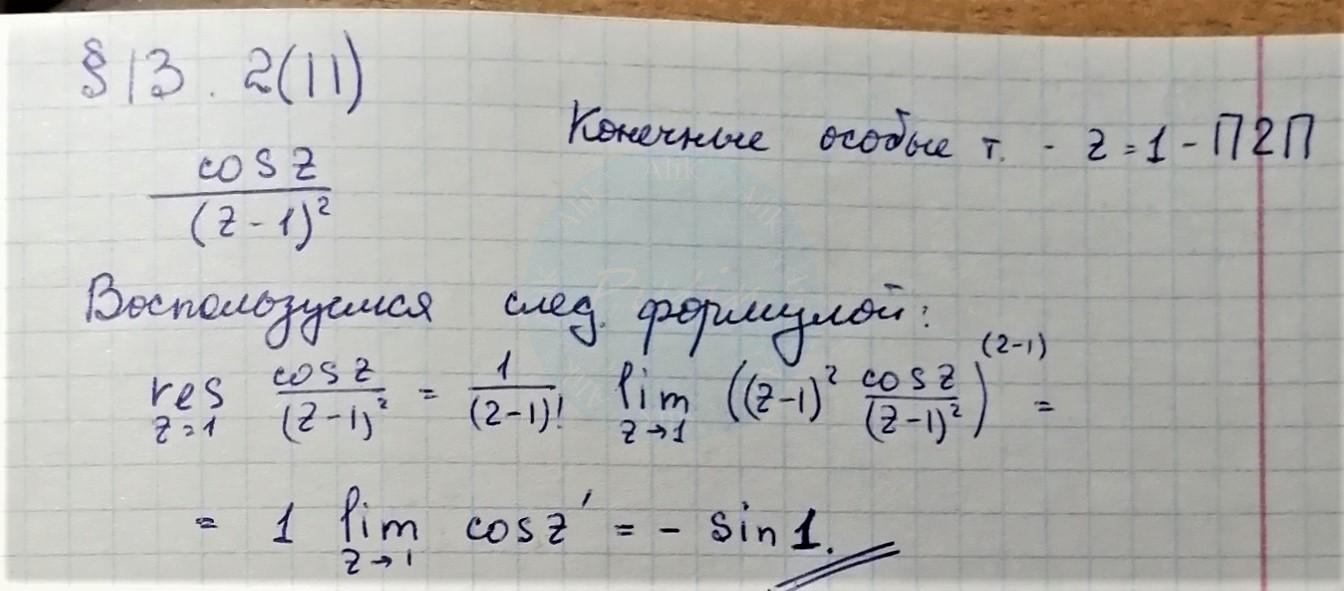 § 13. 2(11)
Конечные особые т. - z = 1 - П2П
cos z / (z-1)²
Воспользуемся след. формулой:
res z=1 cos z / (z-1)² = 1/(2-1)! lim z→1 ((z-1)² cos z / (z-1)²)^(2-1) =
= 1 lim z→1 cos z' = - sin 1.